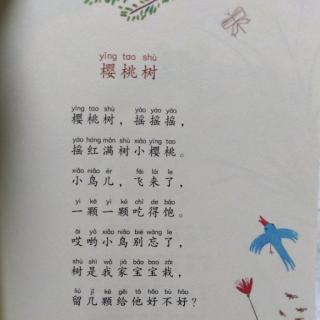 yīng tao shù
樱桃树
yīng tao shù yáo yáo yáo
樱桃树，摇摇摇，
yáo hóng mǎn shù xiǎo yīng tao
摇红满树小樱桃。
xiǎo niǎo ér fēi lái le
小鸟儿，飞来了，
yì kē yì kē chī dé bǎo
一颗一颗吃得饱。
āi yō xiǎo niǎo bié wàng le
哎哟小鸟别忘了，
shù shì wǒ jiā bǎo bao zāi
树是我家宝宝栽，
liú jǐ kē gěi tā hǎo bù hǎo
留几颗给他好不好？